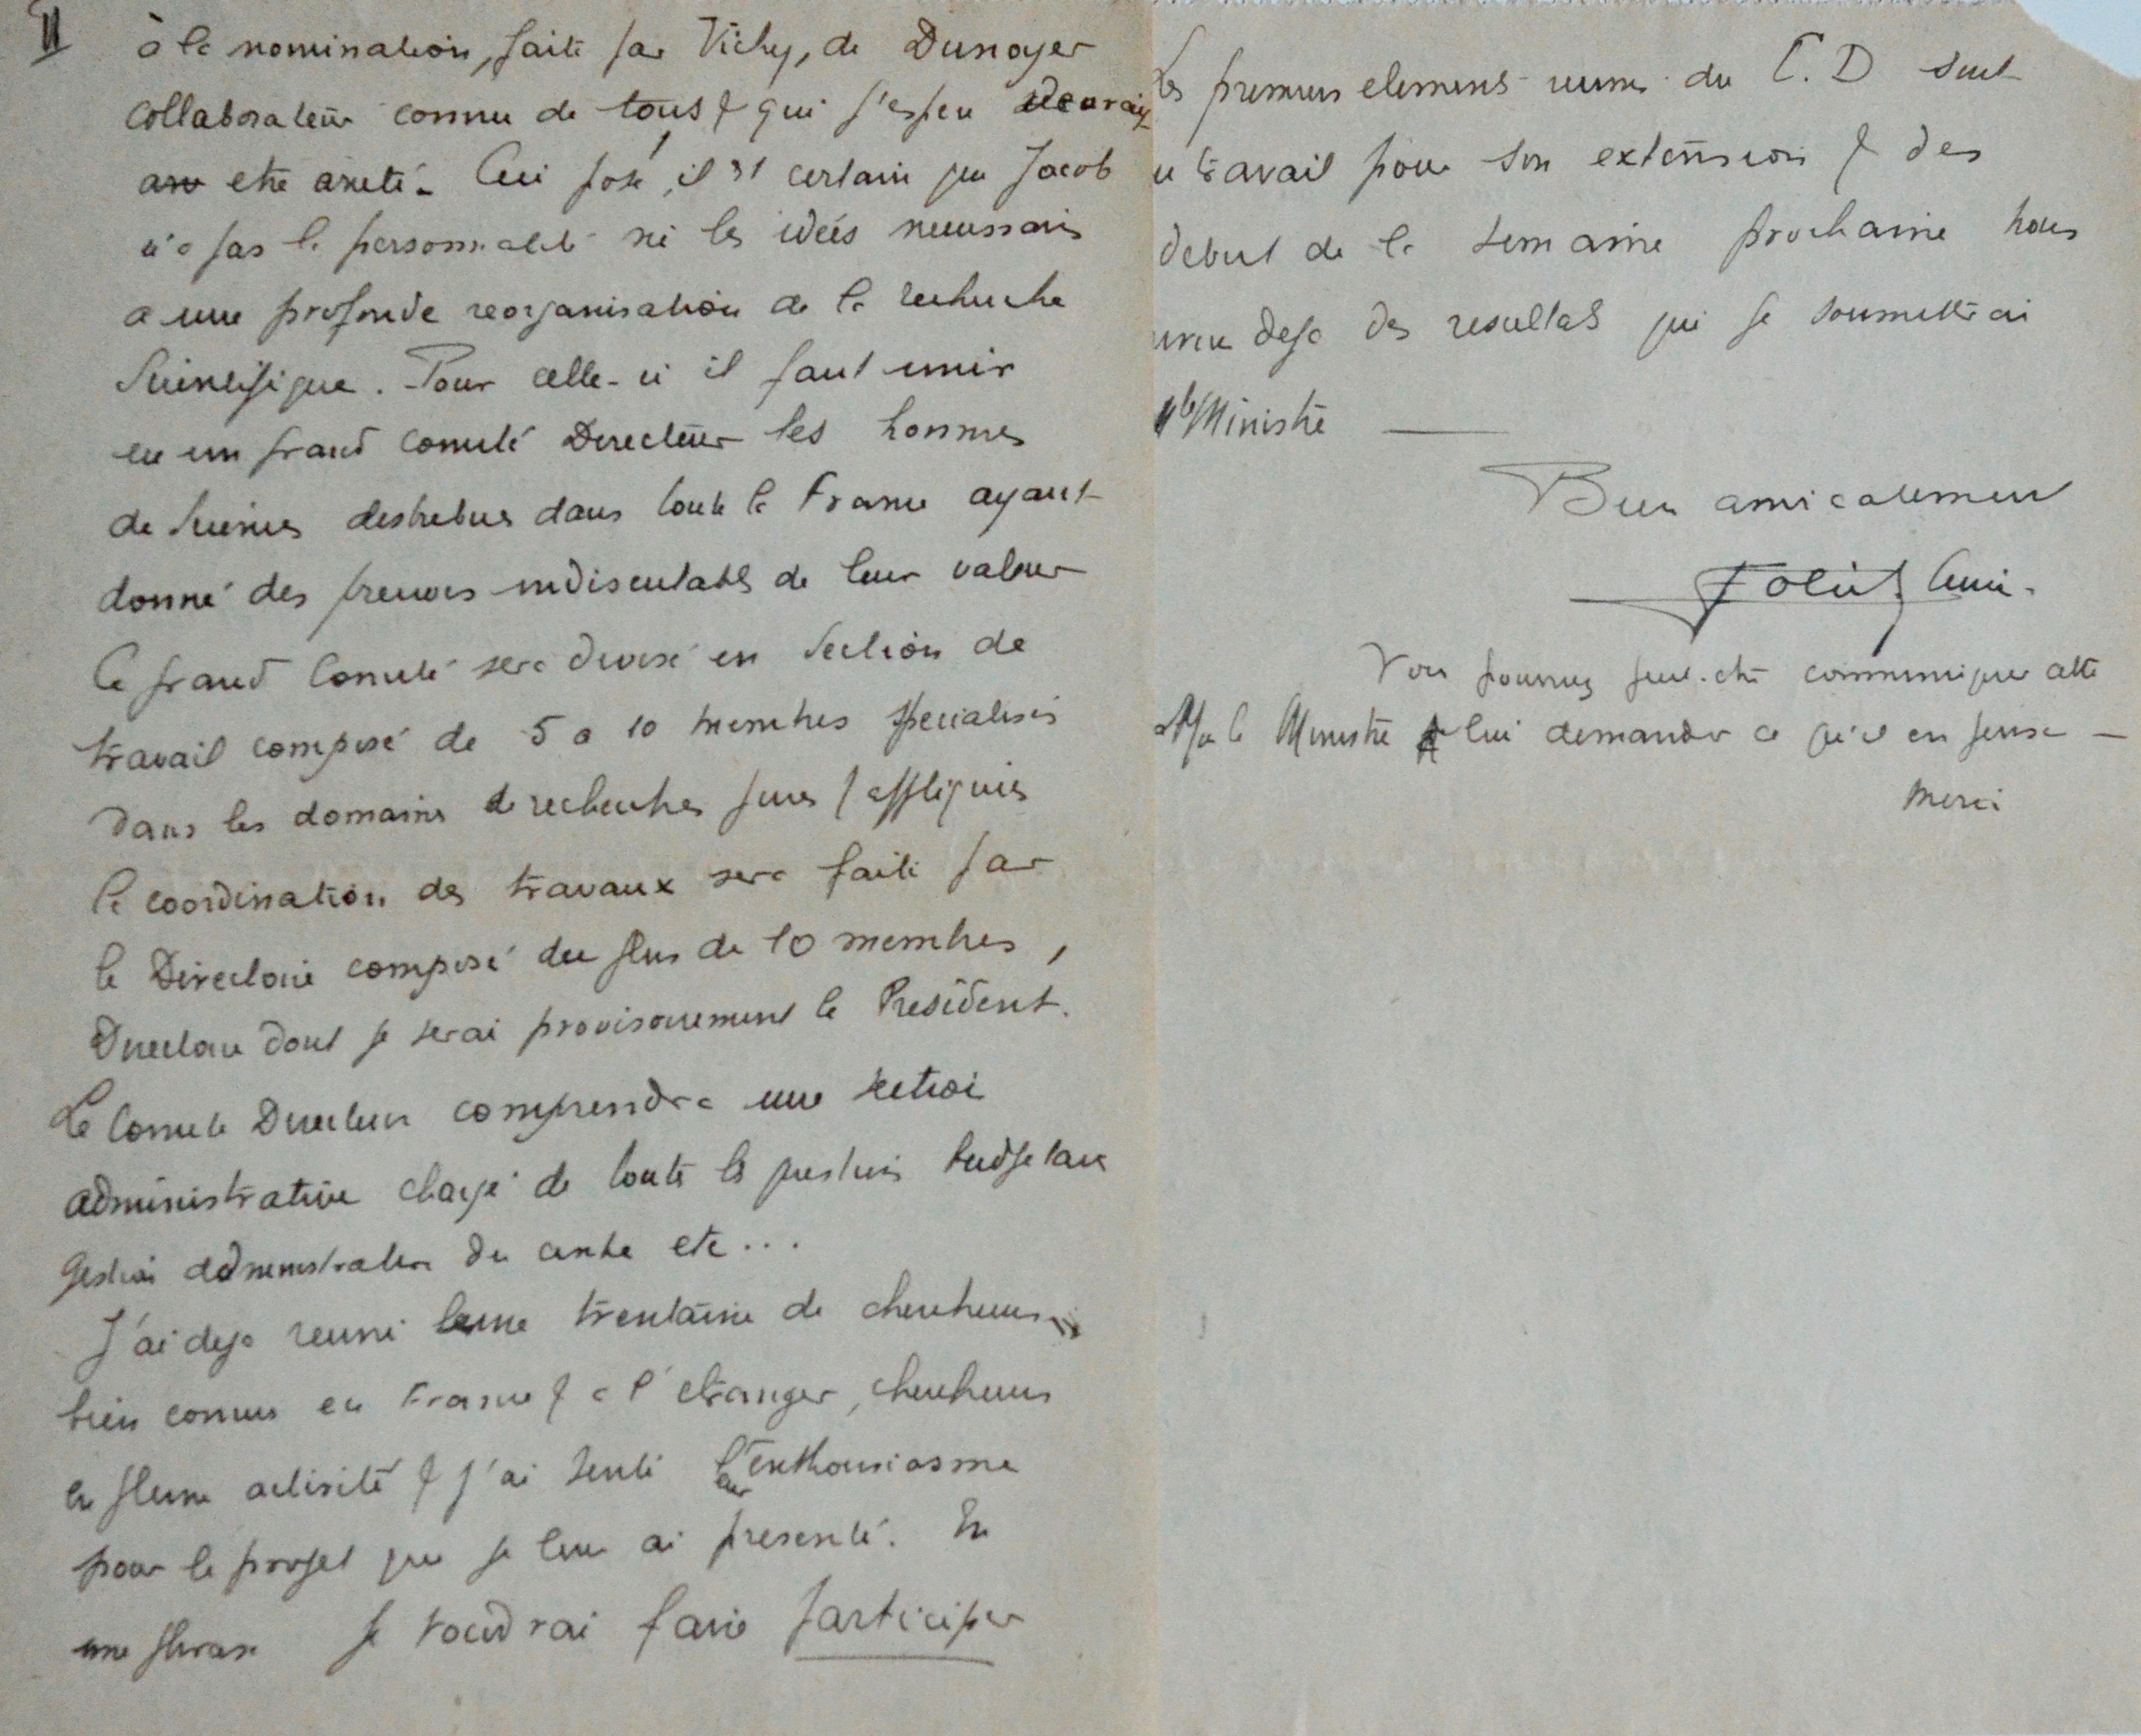 II
à la nomination, faite par Vichy, de Dunoyer
collaborateur connu de tous & qui j'espère devrait
etre arreté. Ceci posé, il est certain que Jacob
n'a pas la personnalité ni les idées necessaires
a une profonde reorganisation de la recherche
Scientifique. Pour celle-ci il faut unir
en un grand comité Directeur les hommes
de Sciences distribues dans toute la France ayant
donné des preuves indiscutables de leur valeur
Ce grand Comité sera divisé en Section de
travail composé de 5 a 10 membres specialisés
dans les domaines de recherches pures & appliquées
la coordination des travaux sera faite par
le Directoire composé du plus de 10 membres,
Directoire dont je serai provisoirement le President.
Le Comité Directeur comprendra une section
administrative chargé de toute les questions budgetaires
gestion administrative du centre etc...
J'ai deja reuni une trentaine de chercheurs
bien connus en France & a l'etranger, chercheurs
en pleine activité & j'ai senti leur enthousiasme
pour le projet que je leur ai presenté. En
une phrase je voudrai faire participer
Les premiers elements reunis du C.D sont
au travail pour son extension & des
debut de la semaine prochaine nous
aurons deja des resultats que je soumettrai
Ministre
Bien amicalement
Joliot Curie.
Vous pourrez peut-etre communiquer cette
le Ministre & lui demander ce qu'il en pense —
Merci